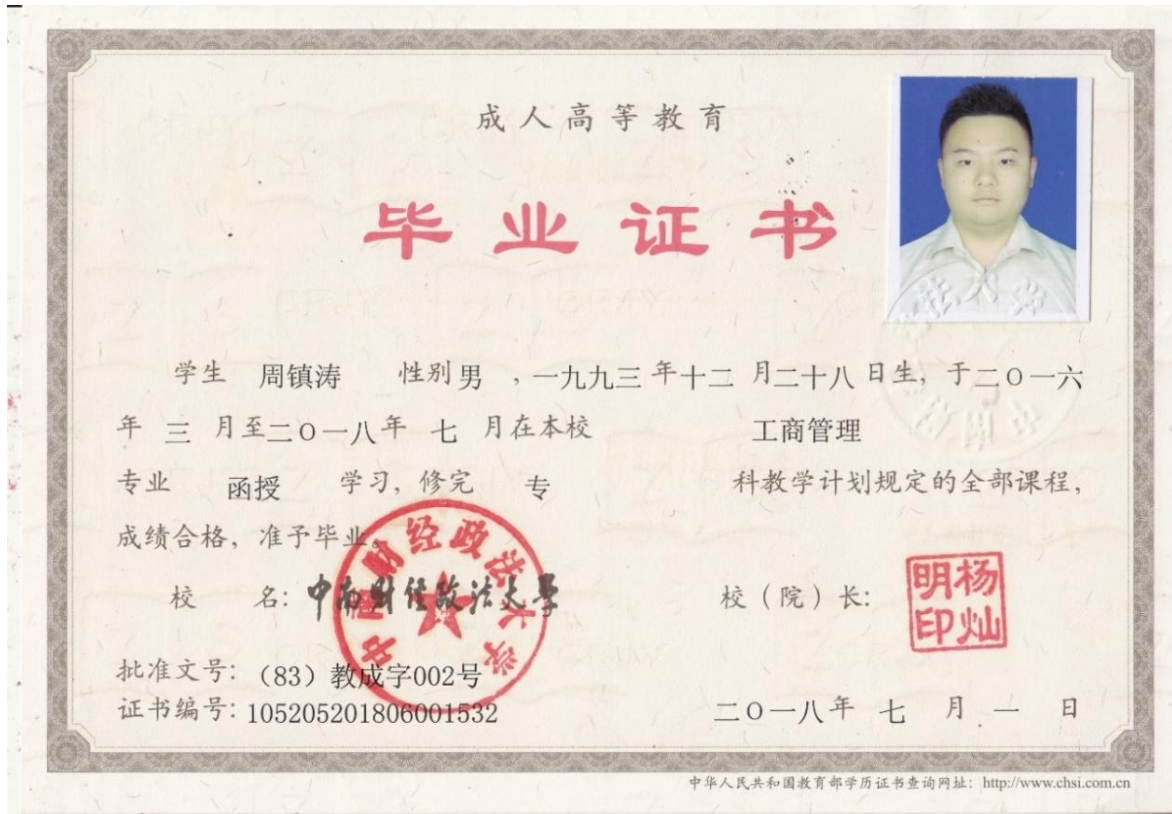 成人高等教育
毕业证书
学生 周镇涛 性别 男 ，一九九三 年 十二 月 二十八 日生，于 二〇一六
年 三 月至 二〇一八 年 七 月在本校 工商管理
专业 函授 学习，修完 专 科教学计划规定的全部课程，
成绩合格，准予毕业。
校 名：中南财经政法大学
中南财经政法大学
校（院）长：
杨灿明印
批准文号：（83）教成字002号
证书编号：105205201806001532
二〇一八 年 七 月 一 日
中华人民共和国教育部学历证书查询网址：http://www.chsi.com.cn